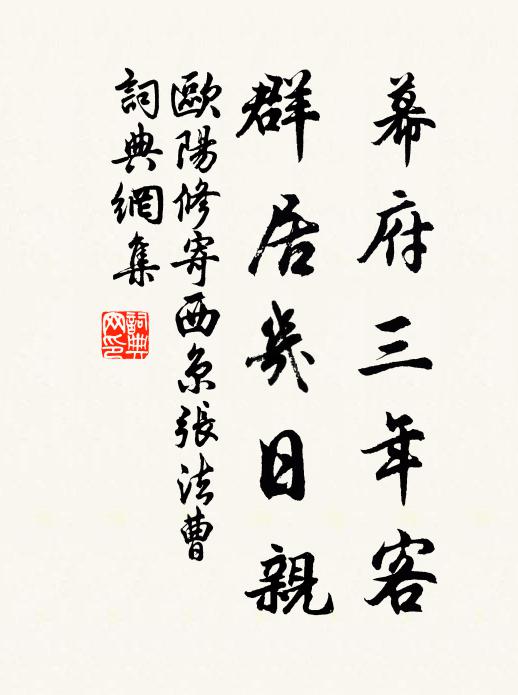 幕府三年客
群居幾日親
歐陽修寄西京張法曹
詞典網集
詞典網印